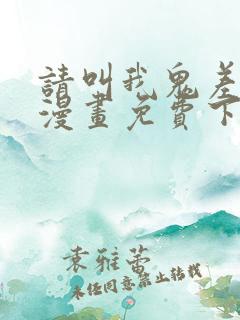 請叫我鬼差
漫畫免費下
袁雅蕾
未经同意禁止转载